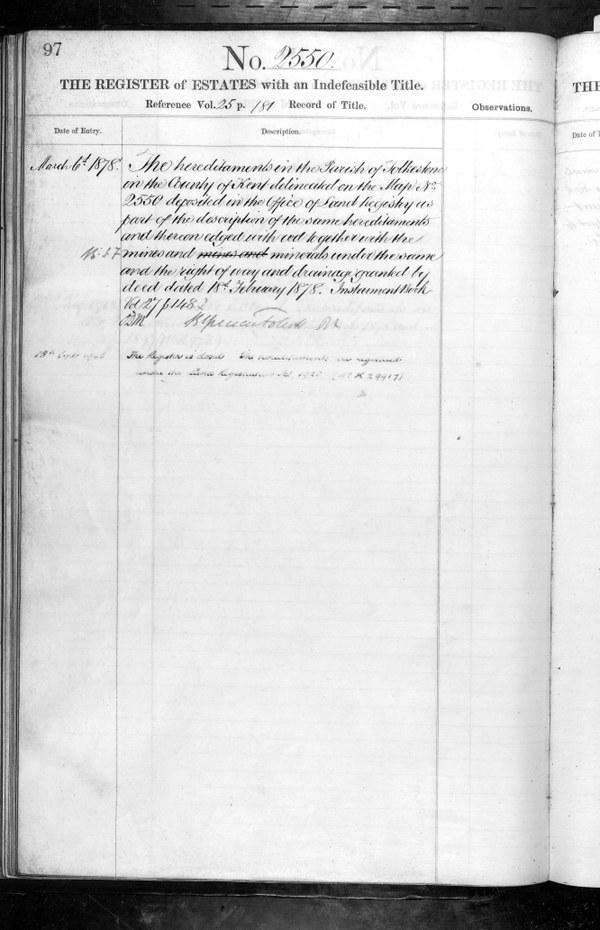 97
No. 2550.
THE REGISTER of ESTATES with an Indefeasible Title.
Reference Vol. 25 p. 181 Record of Title.
Observations.
Date of Entry.
Description.
March 6th 1878.
The hereditaments in the Parish of Folkestone
in the County of Kent delineated on the Map No.
2550 deposited in the Office of Land Registry as
part of the description of the same hereditaments
and thereon edged with red together with the
mines and mines and minerals under the same
and the right of way and drainage granted by
deed dated 18th February 1878. Instrument Book
Vol 27 p 148
The Register is closed The hereditaments are registered
under the Land Registration Act 1925
THE
Date of